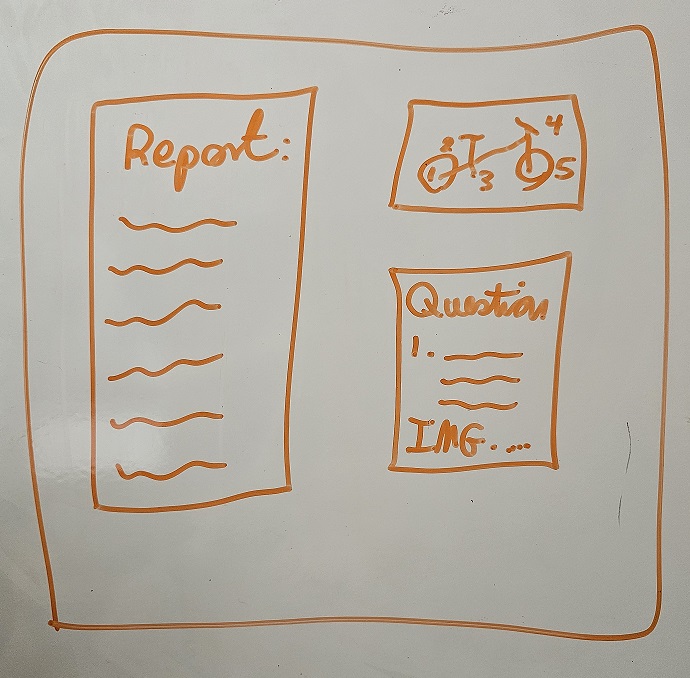 Report:
1
2
3
4
5
Question
1.
IMG. ...